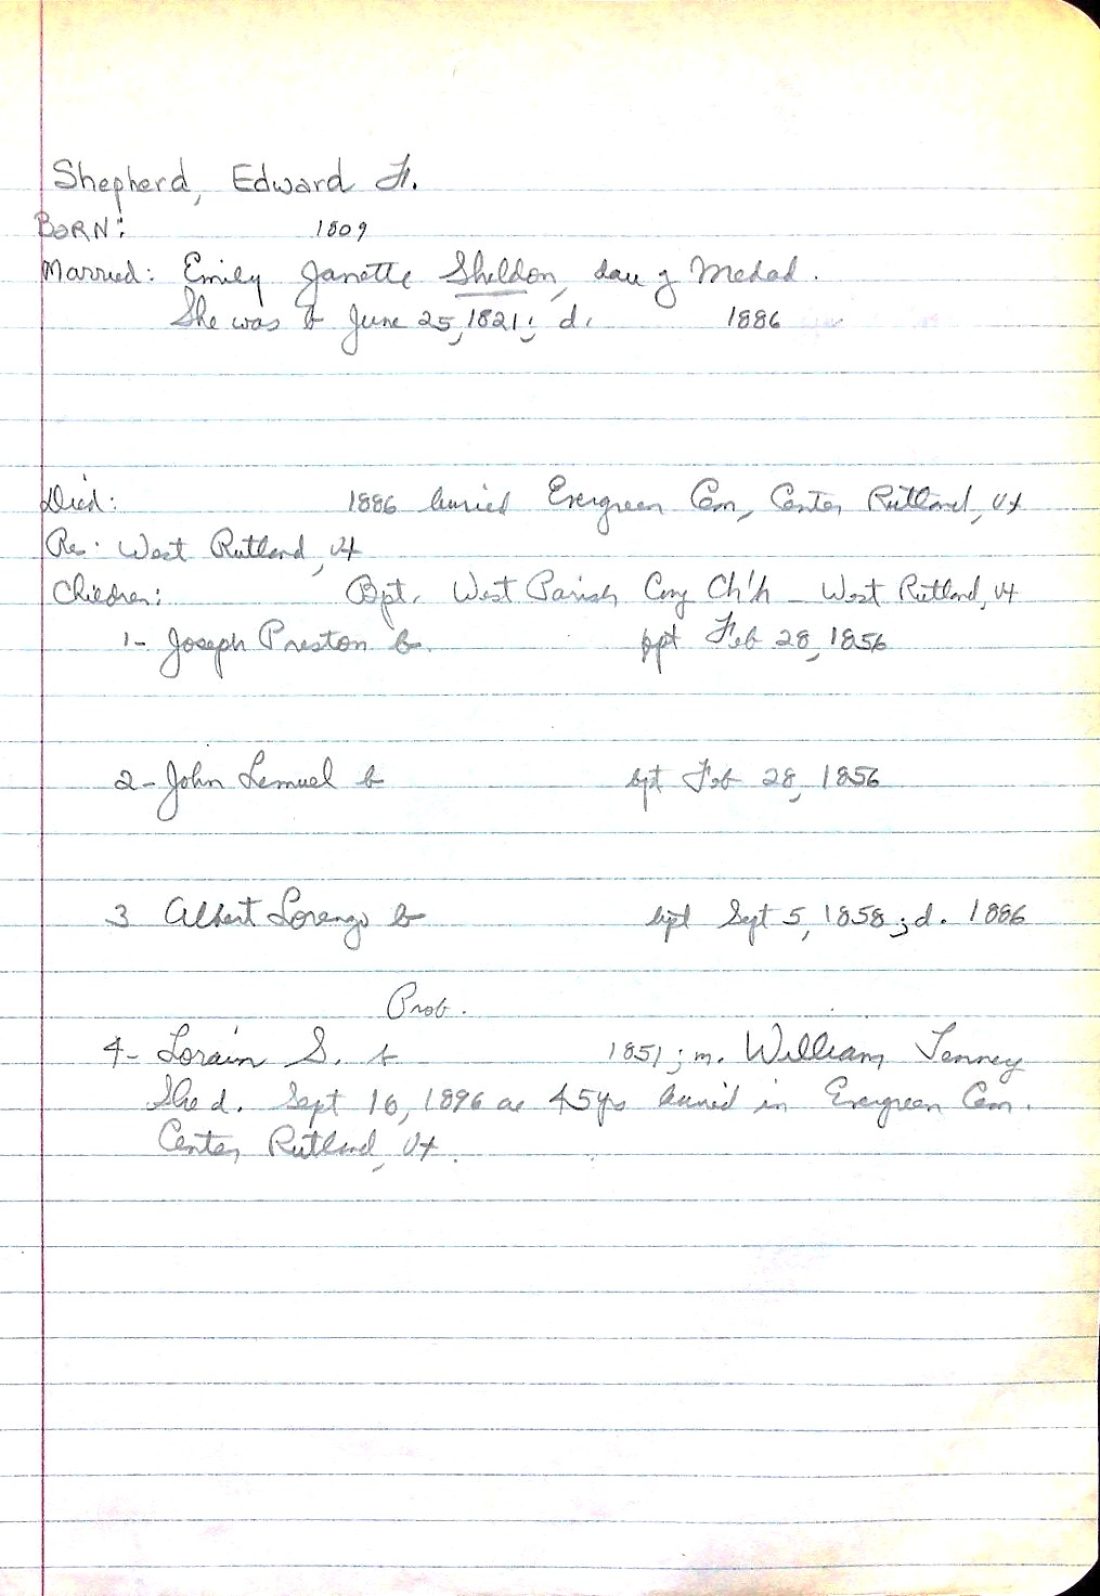 Shepherd, Edward F.
BORN: 1809
Married: Emily Janette Sheldon, dau of Medad.
She was b June 25, 1821; d. 1886
Died: 1886 buried Evergreen Cem, Center Rutland, Vt
Res. West Rutland, Vt
Children: Bpt. West Parish Cong Ch'h - West Rutland, Vt
1- Joseph Preston b. bpt Feb 28, 1856
2- John Lemuel b bpt Feb 28, 1856
3 Albert Lorenzo b bpt Sept 5, 1858; d. 1886
Prob.
4- Lorain S. b 1851; m. William Tenney
She d. Sept 16, 1896 ae 45 yrs buried in Evergreen Cem.
Center Rutland, Vt.